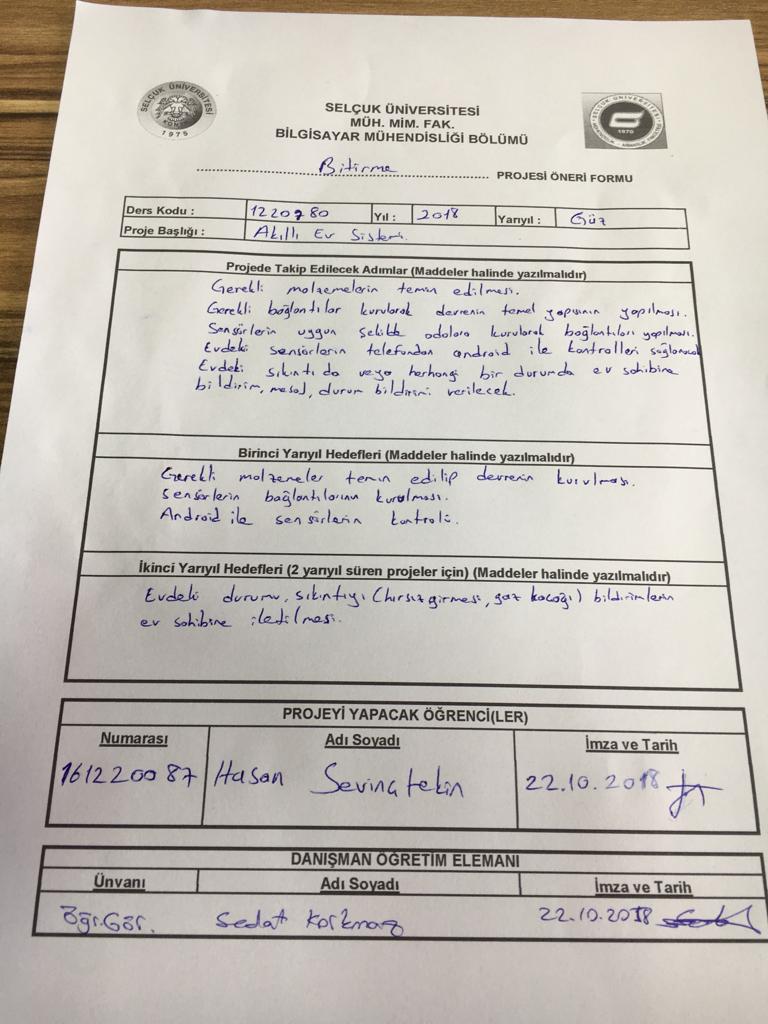 SELÇUK ÜNİVERSİTESİ
1975
SELÇUK ÜNİVERSİTESİ
MÜH. MİM. FAK.
BİLGİSAYAR MÜHENDİSLİĞİ BÖLÜMÜ
SELÇUK ÜNİVERSİTESİ
1970
Bitirme PROJESİ ÖNERİ FORMU
Ders Kodu : 1220780 Yıl : 2018 Yarıyıl : Güz
Proje Başlığı : Akıllı Ev Sistemi.
Projede Takip Edilecek Adımlar (Maddeler halinde yazılmalıdır)
Gerekli malzemelerin temin edilmesi.
Gerekli bağlantılar kurularak devrenin temel yapısının yapılması.
Sensörlerin uygun şekilde odalara kurularak bağlantıları yapılması.
Evdeki sensörlerin telefondan android ile kontrolleri sağlanacak
Evdeki sıkıntı da veya herhangi bir durumda ev sahibine
bildirim, mesaj, durum bildirimi verilecek.
Birinci Yarıyıl Hedefleri (Maddeler halinde yazılmalıdır)
Gerekli malzemeler temin edilip devrenin kurulması.
Sensörlerin bağlantılarının kurulması.
Android ile sensörlerin kontrolü.
İkinci Yarıyıl Hedefleri (2 yarıyıl süren projeler için) (Maddeler halinde yazılmalıdır)
Evdeki durumu, sıkıntıyı (hırsız girmesi, gaz kaçağı) bildirimlerin
ev sahibine iletilmesi.
PROJEYİ YAPACAK ÖĞRENCİ(LER)
Numarası Adı Soyadı İmza ve Tarih
161220087 Hasan Sevinçtekin 22.10.2018
DANIŞMAN ÖĞRETİM ELEMANI
Ünvanı Adı Soyadı İmza ve Tarih
Öğr.Gör. Sedat Korkmaz 22.10.2018